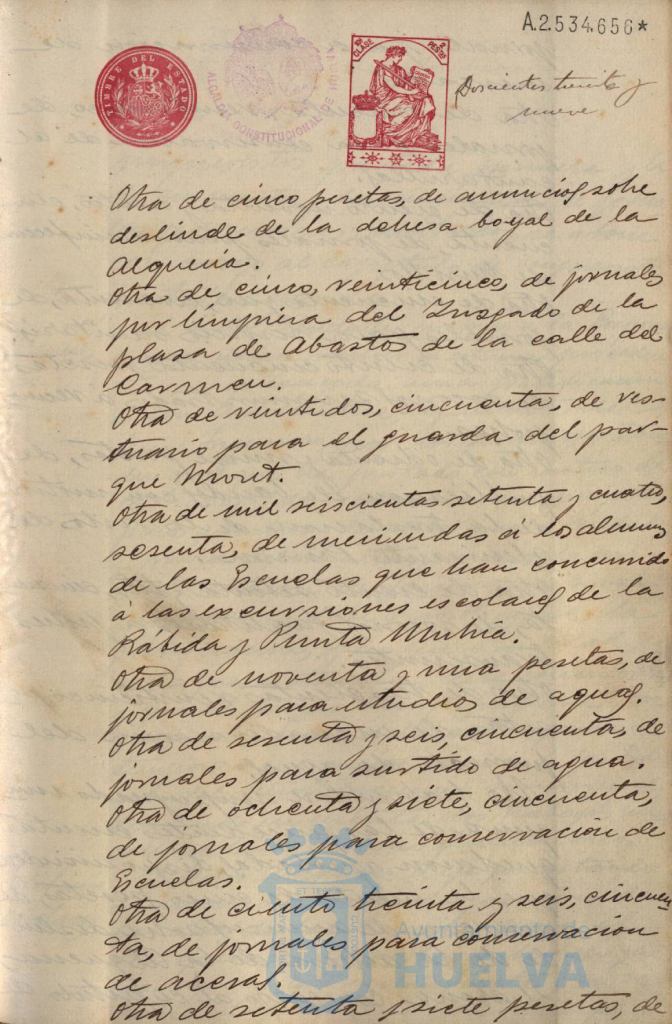 A.2.534.656*
TIMBRE DEL ESTADO
ALCALDIA CONSTITUCIONAL DE HUELVA
10ª CLASE
2 PESETAS
Doscientos treinta y
nueve
Otra de cinco pesetas, de anuncios sobre
deslinde de la dehesa boyal de la
Alqueria.
Otra de cinco, veinticinco, de jornales
por limpieza del Juzgado de la
plaza de Abastos de la calle del
Carmen.
Otra de veintidos, cincuenta, de ves-
tuario para el guarda del par-
que Moret.
Otra de mil seiscientas setenta y cuatro,
sesenta, de meriendas á los alumnos
de las Escuelas que han concurrido
á las excursiones escolares de la
Rábida y Punta Umbría.
Otra de noventa y una pesetas, de
jornales para estudios de aguas.
Otra de sesenta y seis, cincuenta, de
jornales para surtido de agua.
Otra de ochenta y siete, cincuenta,
de jornales para conservación de
Escuelas.
Otra de ciento treinta y seis, cincuen-
ta, de jornales para conservación
de aceras.
Otra de setenta y siete pesetas, de
Ayuntamiento de
HUELVA